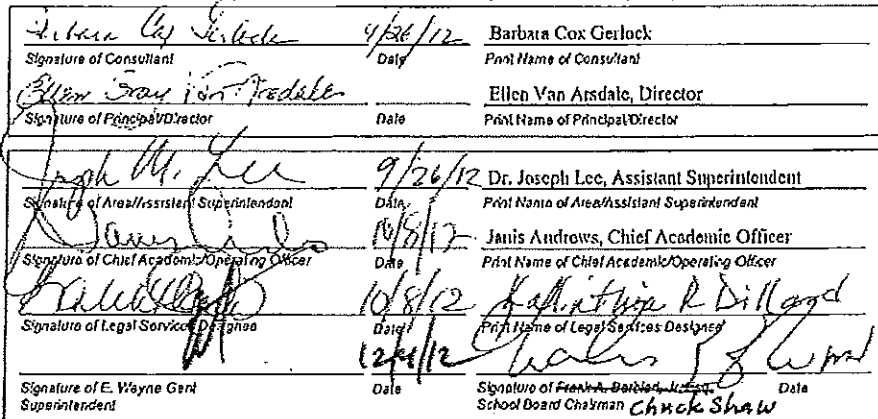 Barbara Cox Gerlock 4/26/12 Barbara Cox Gerlock
Signature of Consultant Date Print Name of Consultant
Ellen Gray Van Arsdale Ellen Van Arsdale, Director
Signature of Principal/Director Date Print Name of Principal/Director
Joseph M. Lee 9/26/12 Dr. Joseph Lee, Assistant Superintendent
Signature of Area/Assistant Superintendent Date Print Name of Area/Assistant Superintendent
10/8/12 Janis Andrews, Chief Academic Officer
Signature of Chief Academic/Operating Officer Date Print Name of Chief Academic/Operating Officer
10/8/12 Kalinthia R Dillard
Signature of Legal Services Designee Date Print Name of Legal Services Designee
12/4/12
Signature of E. Wayne Gent Date Signature of Frank A. Barbieri, Jr. Esq. Date
Superintendent School Board Chairman Chuck Shaw